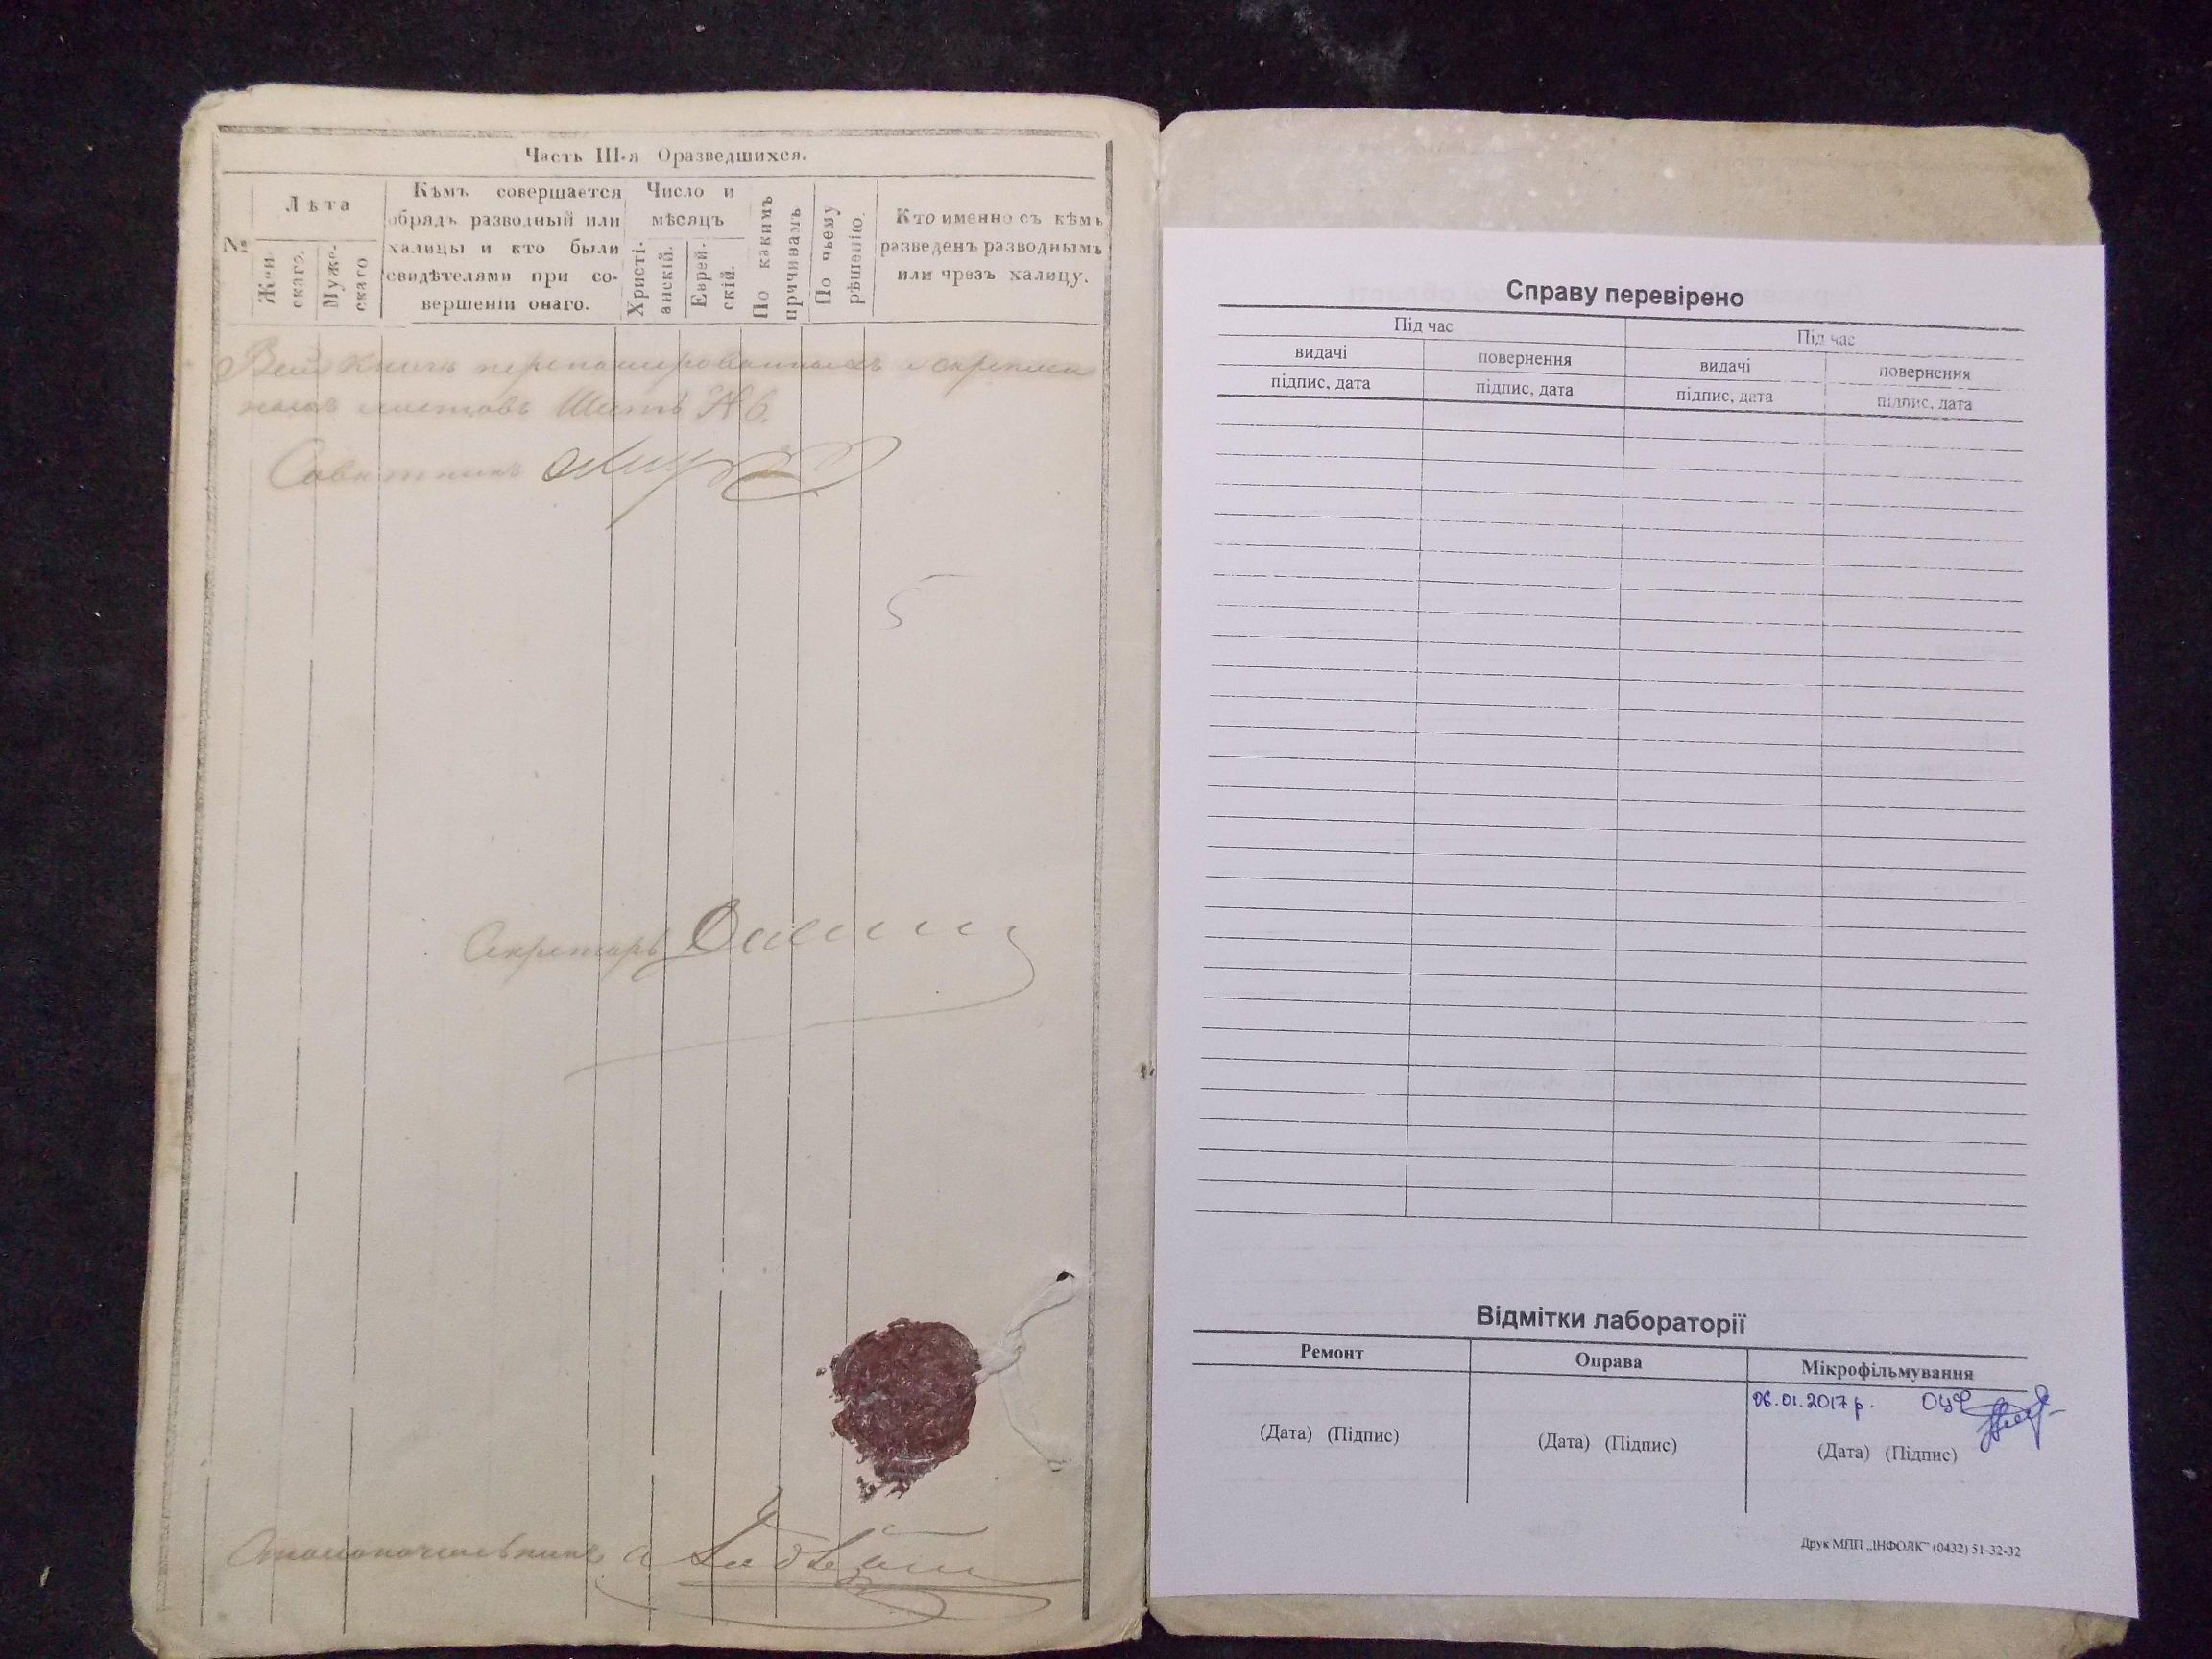 Часть III-я Оразведшихся.
№
Лѣта
Жен-
скаго.
Муже-
скаго
Кѣмъ совершается
обрядъ разводный или
халицы и кто были
свидѣтелями при со-
вершеніи онаго.
Число и
мѣсяцъ
Христі-
анскій.
Еврей-
скій.
По какимъ
причинамъ
По чьему
рѣшенію.
Кто именно съ кѣмъ
разведенъ разводнымъ
или чрезъ халицу.
листовъ Шесть № 6.
Совѣтникъ
5
Секретарь
Столоначальникъ
Справу перевірено
Під час
Під час
видачі
повернення
видачі
повернення
підпис, дата
підпис, дата
підпис, дата
підпис, дата
Відмітки лабораторії
Ремонт
Оправа
Мікрофільмування
06.01.2017 р. ОЦФ
(Дата) (Підпис)
(Дата) (Підпис)
(Дата) (Підпис)
Друк МПП „ІНФОЛК" (0432) 51-32-32